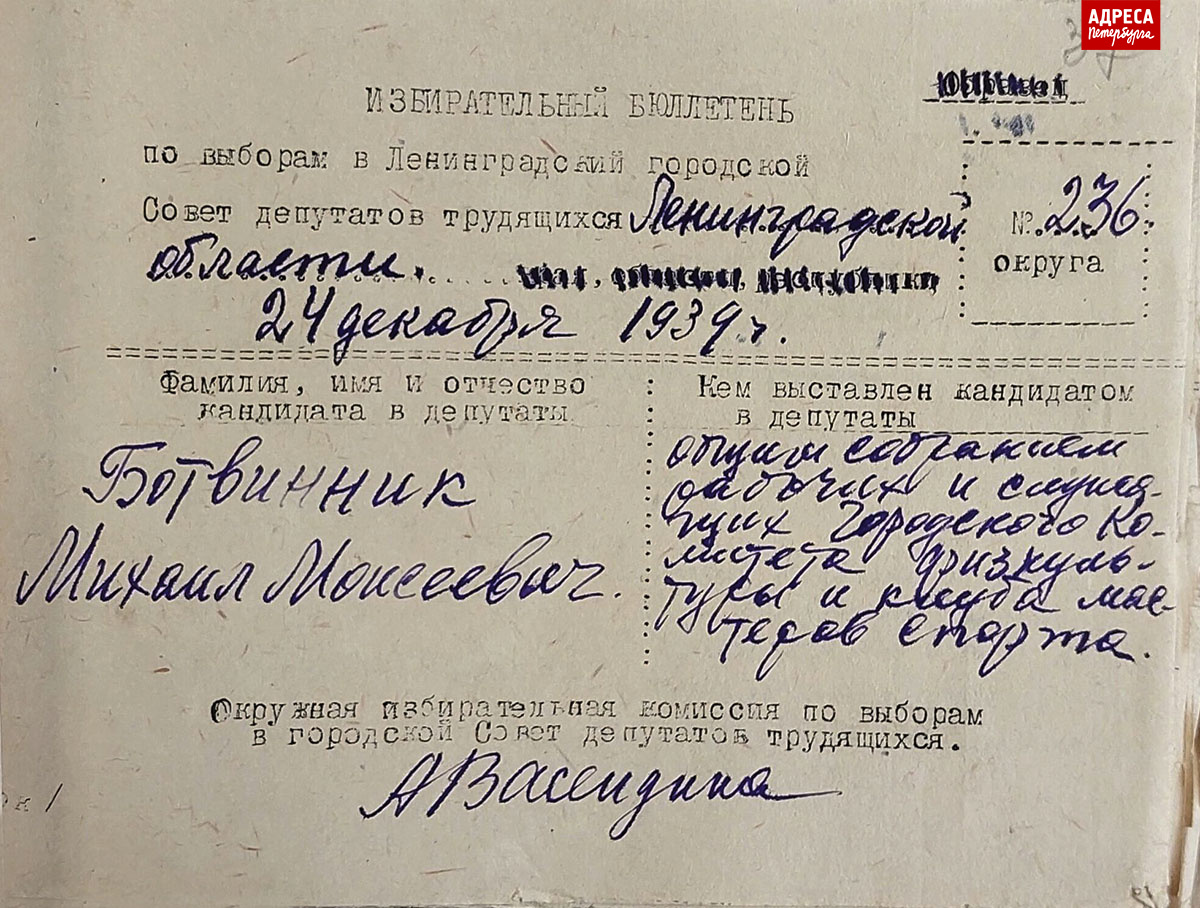 АДРЕСА
Петербурга
37
ИЗБИРАТЕЛЬНЫЙ БЮЛЛЕТЕНЬ
по выборам в Ленинградский городской
Совет депутатов трудящихся Ленинградской
области.
№ 236
округа
24 декабря 1939 г.
Фамилия, имя и отчество
кандидата в депутаты
Ботвинник
Михаил Моисеевич.
Кем выставлен кандидатом
в депутаты
общим собранием
рабочих и служа-
щих Городского Ко-
митета физкуль-
туры и клуба мас-
теров спорта.
Окружная избирательная комиссия по выборам
в городской Совет депутатов трудящихся.
АВасендина